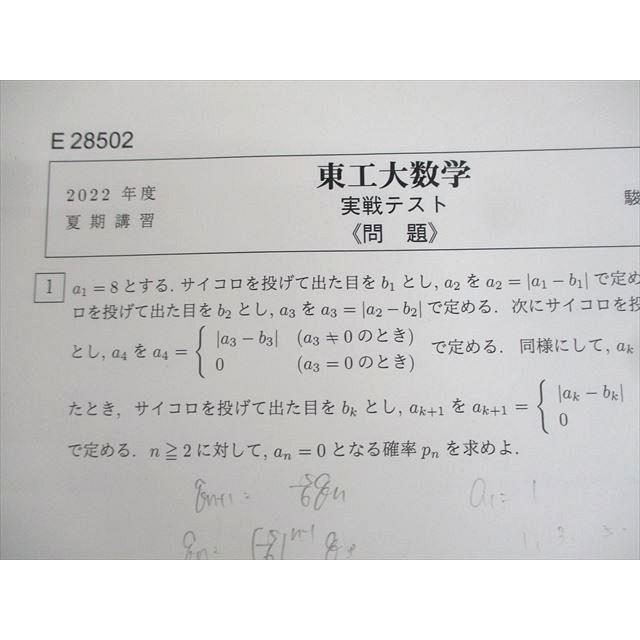 E 28502
2022 年度
夏 期 講 習
東工大数学
実戦テスト
《問 題》
駿
1 a₁ = 8 とする. サイコロを投げて出た目を b₁ とし, a₂ を a₂ = |a₁ − b₁| で定め
ロを投げて出た目を b₂ とし, a₃ を a₃ = |a₂ − b₂| で定める. 次にサイコロを投
とし, a₄ を a₄ = { |a₃ − b₃| (a₃ ≠ 0 のとき)
0 (a₃ = 0 のとき)
で定める. 同様にして, aₖ
たとき, サイコロを投げて出た目を bₖ とし, aₖ₊₁ を aₖ₊₁ = { |aₖ − bₖ|
0
で定める. n ≧ 2 に対して, aₙ = 0 となる確率 pₙ を求めよ.
qₙ₊₁ = 5/6 qₙ
a₁ = 1